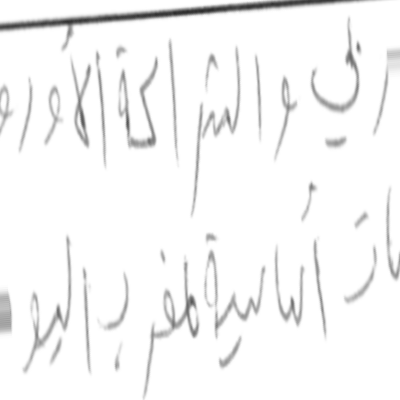 ربي والشراكة الأورو
ات أساسية لمغرب اليو